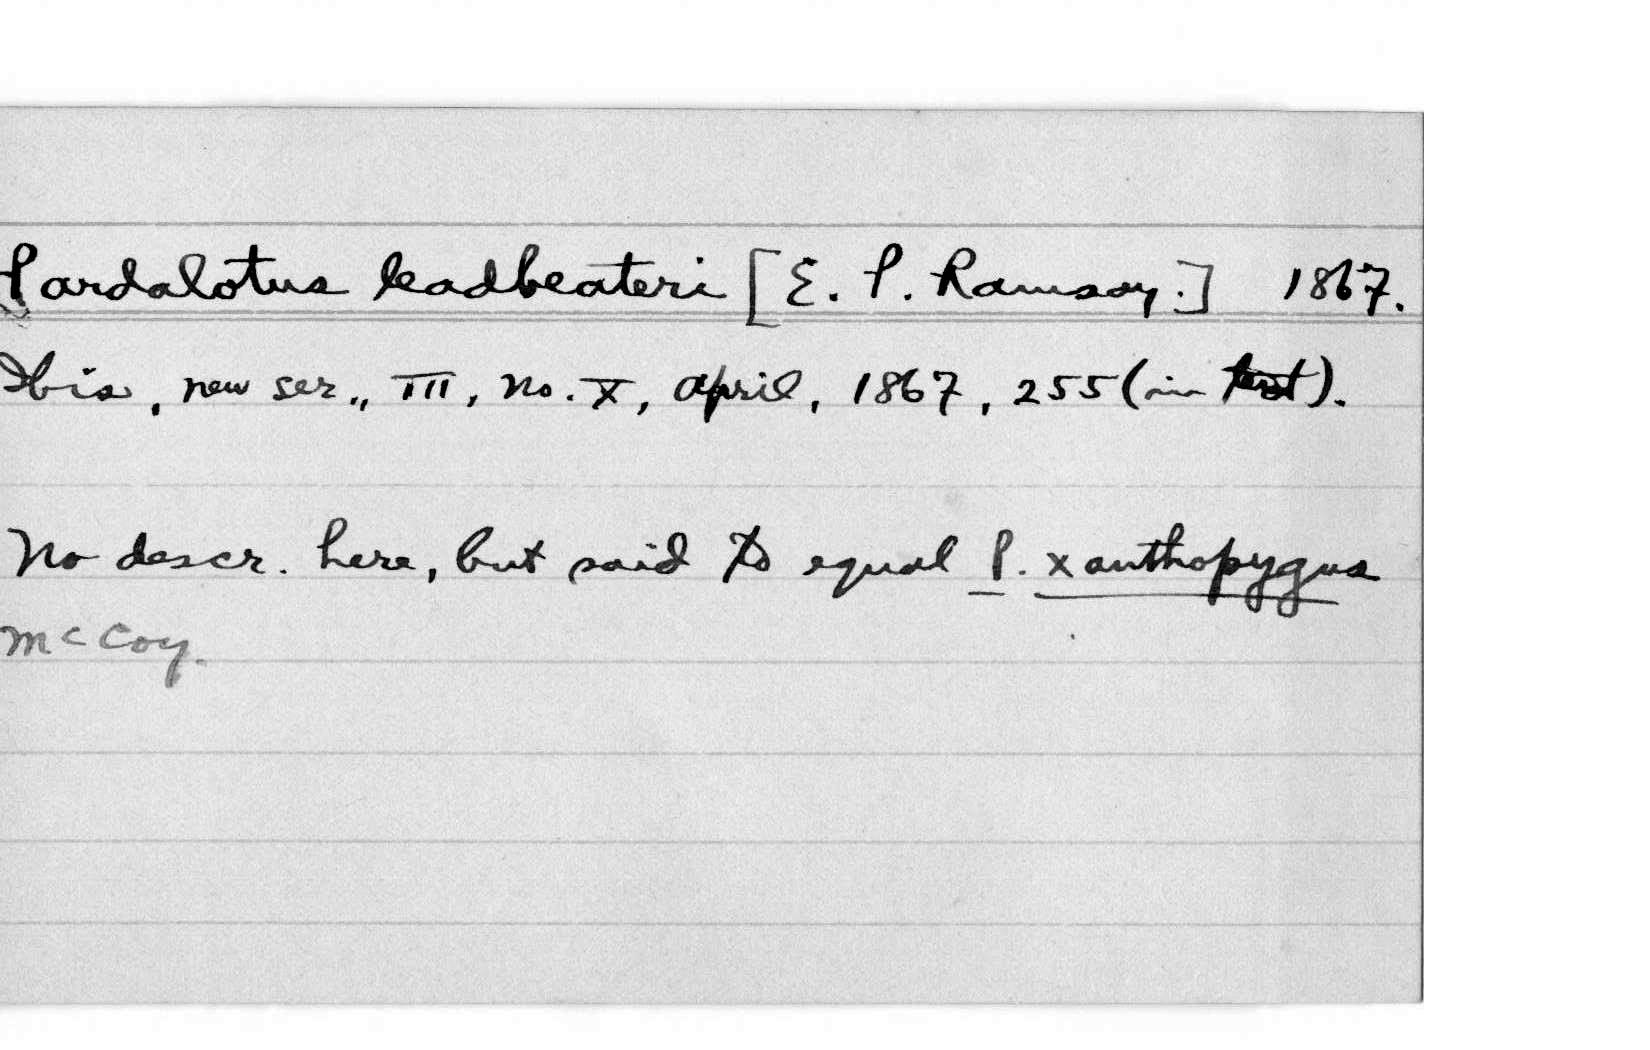 Pardalotus leadbeateri [E. P. Ramsay.] 1867.
Ibis, new ser., III, No. X, April, 1867, 255 (in text).
No descr. here, but said to equal P. xanthopygus
McCoy.